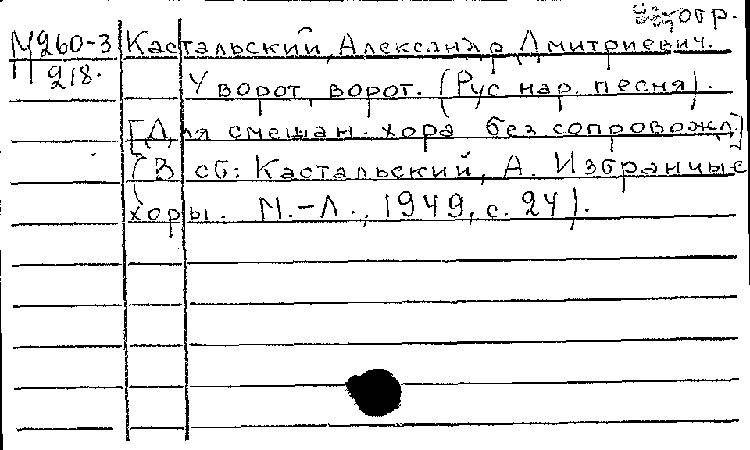 огр.
М260-3 Кастальский, Александр Дмитриевич.
П 218. У ворот, ворот. (Рус. нар. песня).
[Для смешан. хора без сопровожд.]
(В сб: Кастальский, А. Избранные
хоры. М.-Л., 1949, с. 24).